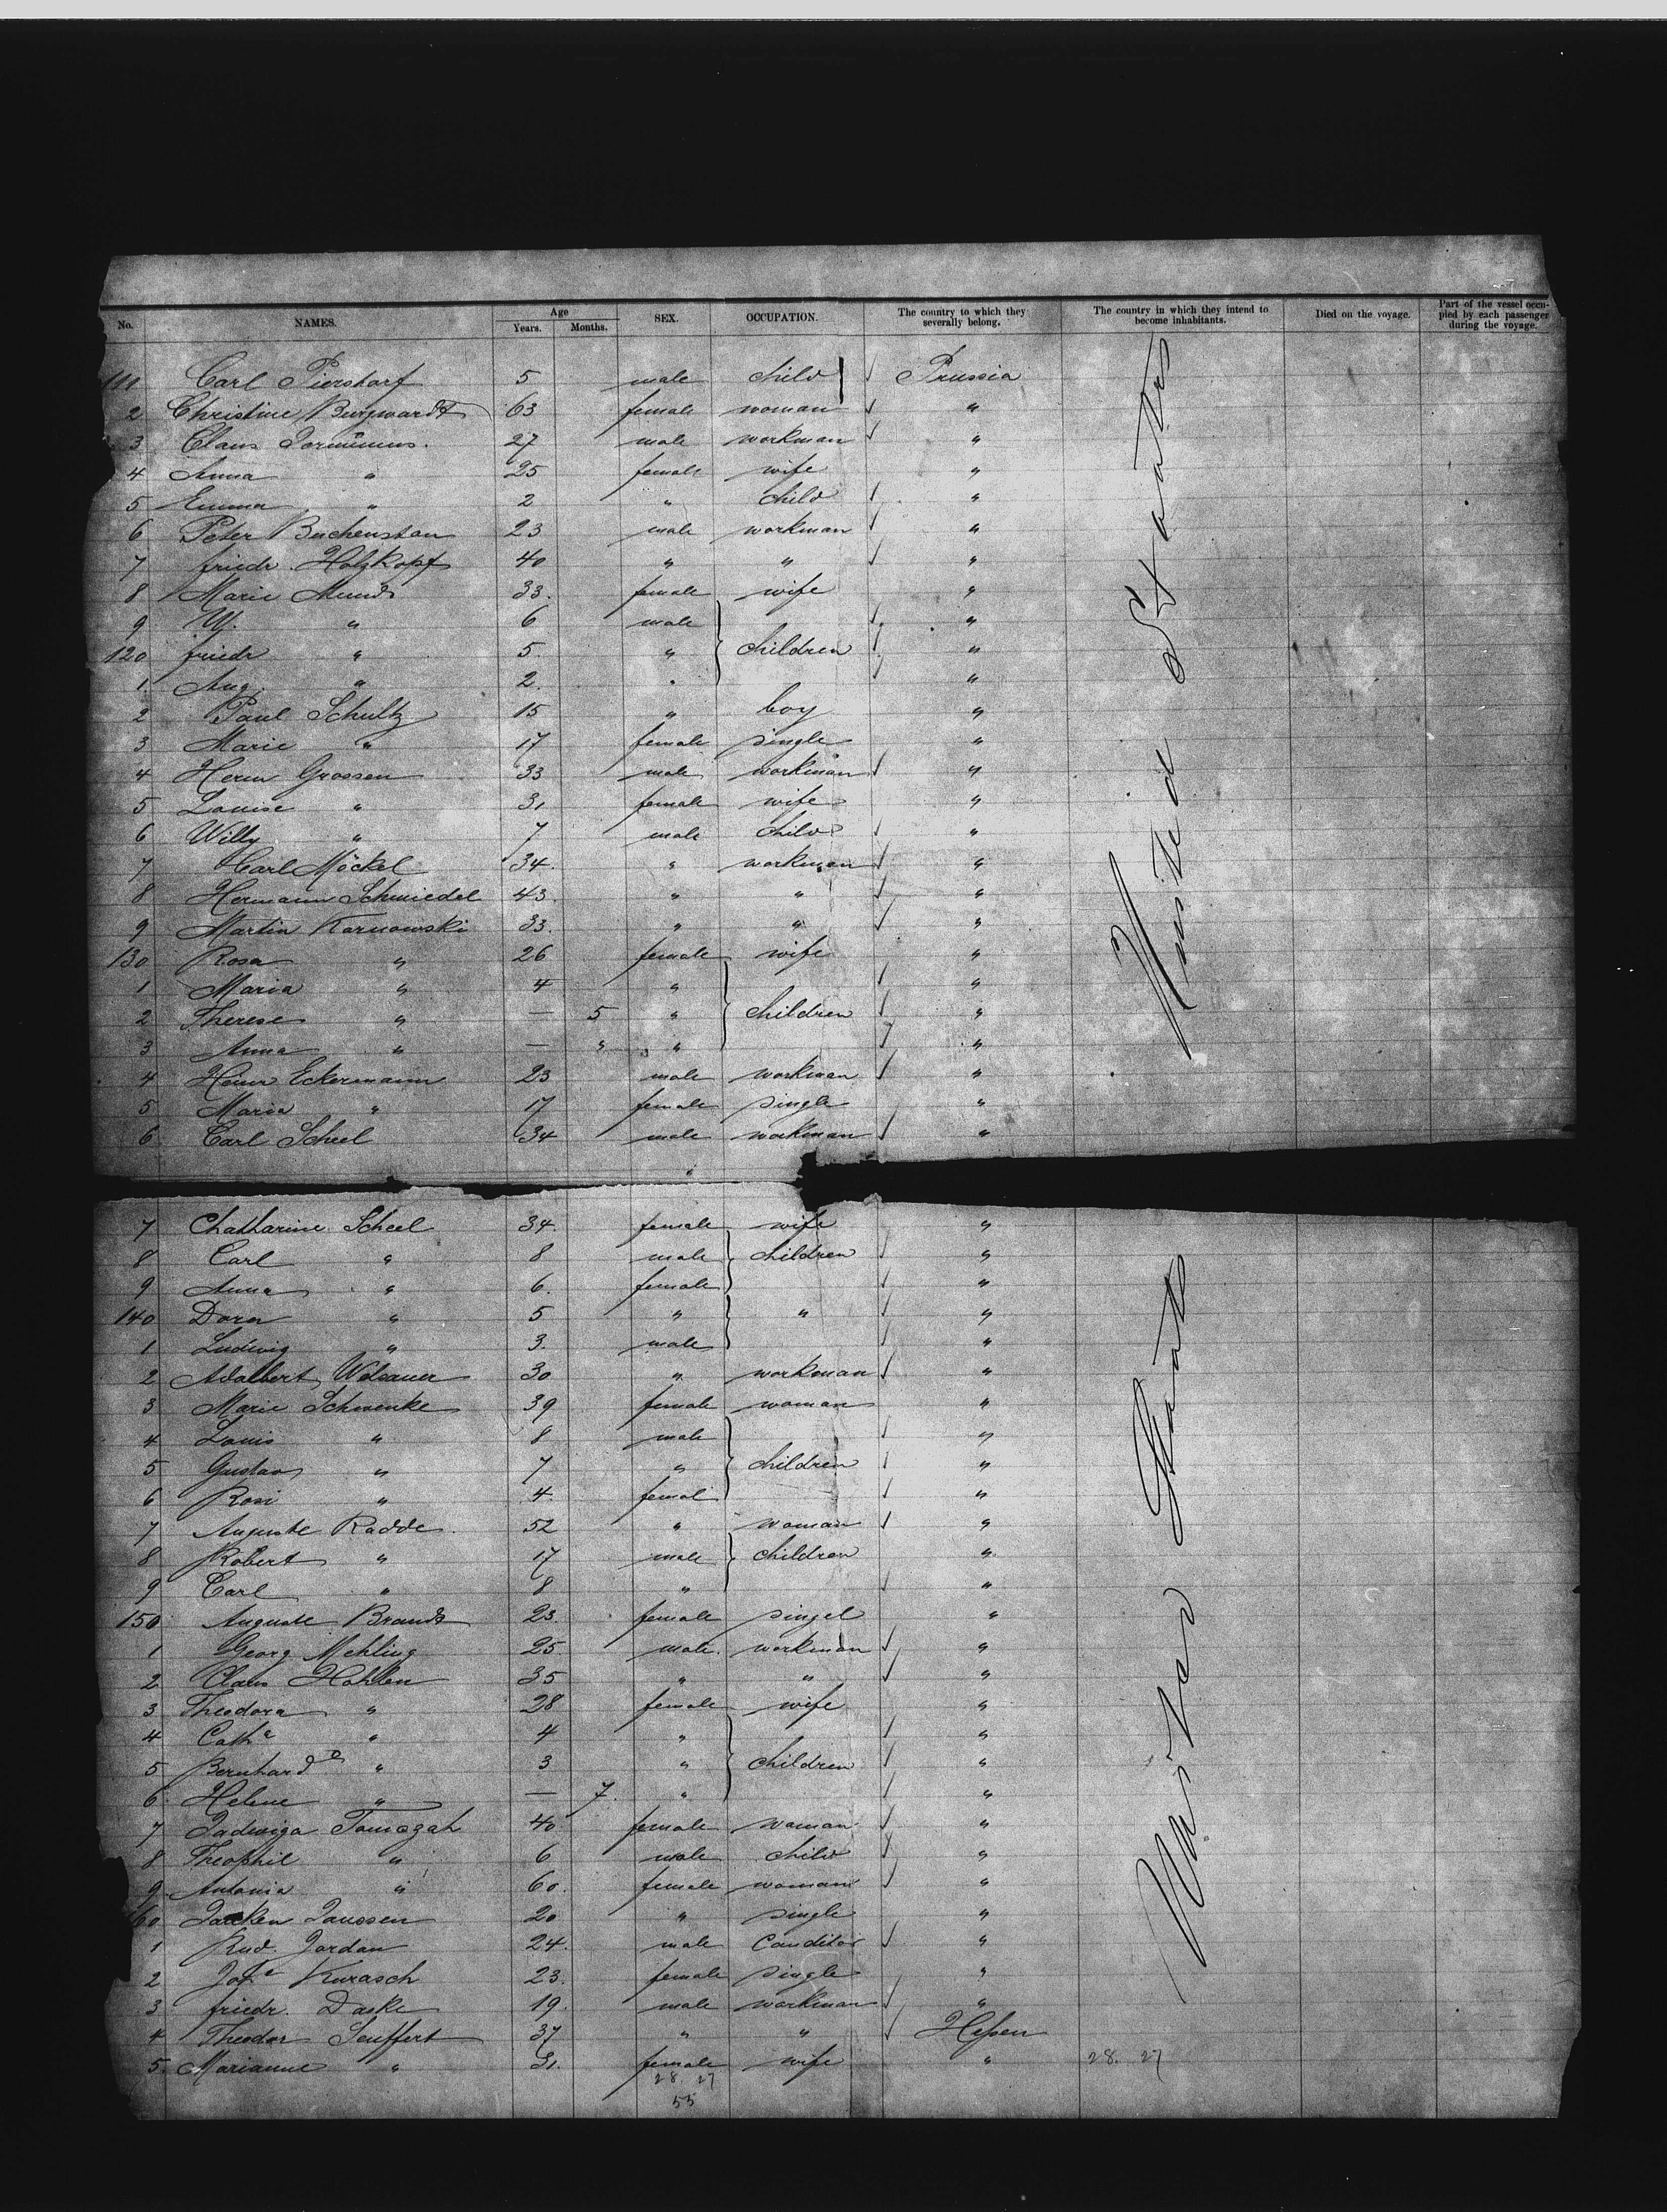 No. NAMES. Age Years. Months. SEX. OCCUPATION. The country to which they severally belong. The country in which they intend to become inhabitants. Died on the voyage. Part of the vessel occupied by each passenger during the voyage.
111 Carl Pierstorf 5 male child Prussia
2 Christine Burgwardt 63 female woman "
3 Claus 27 male workman "
4 Anna " 25 female wife "
5 Emma " 2 " child "
6 Peter Buchenstan 23 male workman "
7 friedr. Holzkopf 40 " " "
8 Marie Mund 33. female wife "
9 W. " 6 male "
120 friedr " 5 " children "
1. Aug. " 2. " "
2 Paul Schultz 15 " boy "
3 Marie " 17 female single "
4 Herm Grossen 33 male workman "
5 Louise " 31 female wife "
6 Willy " 7 male child "
7 Carl Möckel 34. " workman "
8 Hermann Schmiedel 43. " " "
9 Martin Karnowski 33. " " "
130 Rosa " 26 female wife "
1 Maria " 4 " "
2 Therese " — 5 " children "
3 Anna " — " " "
4 Heinr Eckermann 23 male workman "
5 Maria " 17 female single "
6 Carl Scheel 34 male workman "
7 Chatharine Scheel 34. female wife "
8 Carl " 8 male children "
9 Anna " 6. female "
140 Dora " 5 " " "
1 Ludwig " 3. male "
2 Adalbert 30 " workman "
3 Marie Schwenke 39 female woman "
4 Louis " 8 male "
5 Gustav " 7 " children "
6 Rosi " 4. femal "
7 Auguste Radde. 52 " woman "
8 Robert " 17 male children "
9 Carl " 8 " "
150 Auguste Brandt 23. female singel "
1 Georg Mehling 25. male. workman "
2 Claus Hahlen 35 " " "
3 Theodora " 28 female wife "
4 Cathe " 4 " "
5 Bernhard " 3 " children "
6 Helene " — 7. " "
7 Jadwiga 40 female woman "
8 Theophil " 6 male child "
9 Antonia " 60. female woman "
60 Janssen 20 " single "
1 Rud. Jordan 24. male Conditor "
2 Kurasch 23. female single "
3 friedr. Daske 19. male workman "
4 Theodor Seuffert 37 " " Hessen
5. Marianne " 31. female wife " 28. 27
28. 27
55
United States
United States